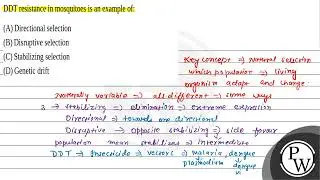 DDT resistance in mosquitoes is an example of:
(A) Directional selection
(B) Disruptive selection
(C) Stabilizing selection
(D) Genetic drift
Key concept → Natural selection
which population → living
organism adapt and change.
Naturally variable → all different → some ways
→ stabilizing → elimination → extreme expression
Directional → towards one directional
Disruptive → opposite stabilizing → side favour
population mean stabilizes → intermediate
DDT → Insecticide → vectors → malaria, dengue
plasmodium dengue
PW